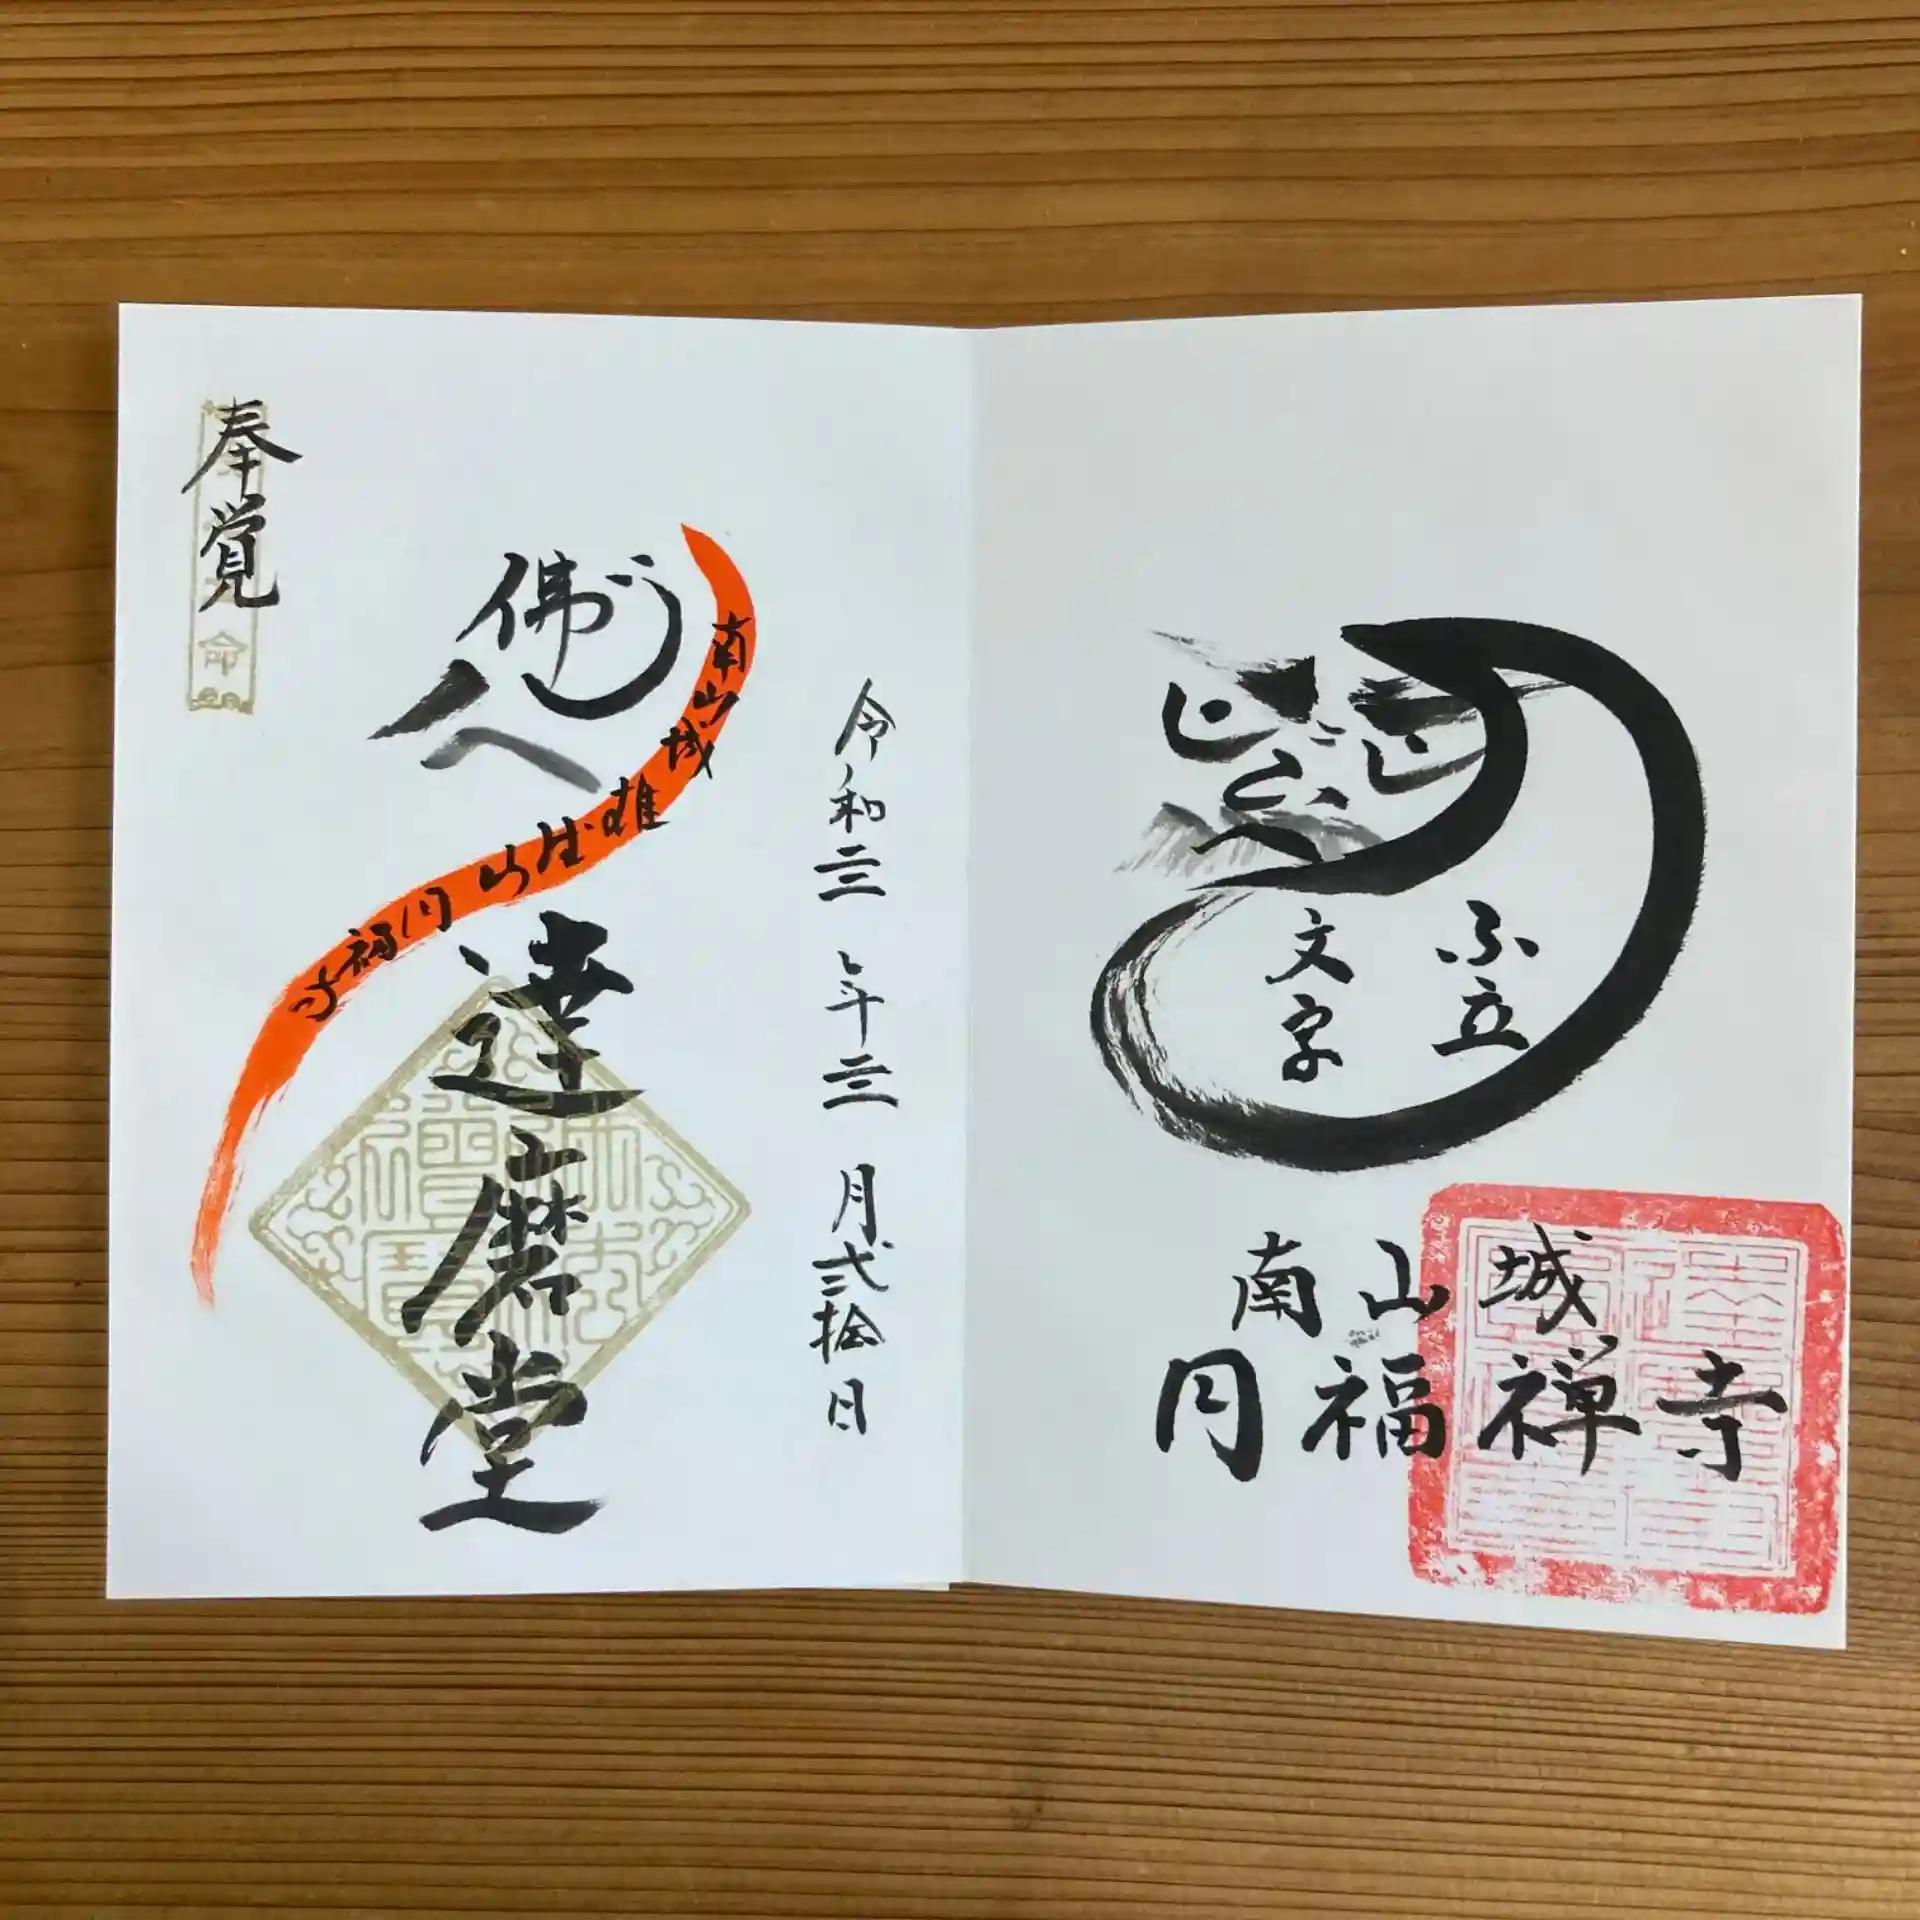 不立
文字
南山城
円福禅寺
令和三年三月弐拾日
南山城雄徳山円福寺
佛
達磨堂
奉覚